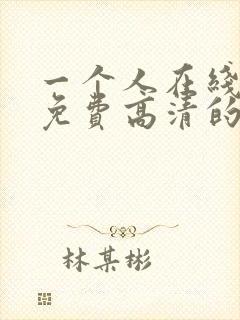 一个人在线
免费高清的
林某彬